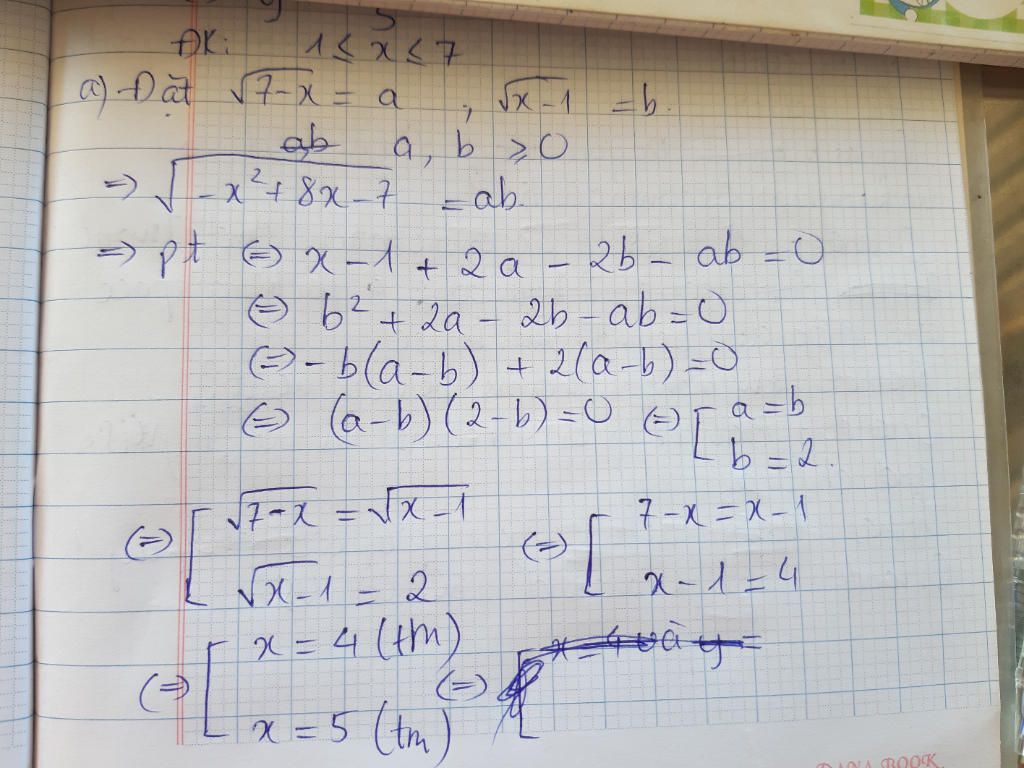 ĐK: 1 ≤ x ≤ 7
a) Đặt √(7-x) = a , √(x-1) = b.
a, b ≥ 0
=> √(-x² + 8x - 7) = ab.
=> pt (=) x - 1 + 2a - 2b - ab = 0
(=) b² + 2a - 2b - ab = 0
(=) - b(a-b) + 2(a-b) = 0
(=) (a-b)(2-b) = 0 (=) [ a = b
b = 2.
(=) [ √(7-x) = √(x-1) (=) [ 7-x = x-1
√(x-1) = 2 x - 1 = 4
(=) [ x = 4 (tm) (=) [
x = 5 (tm)